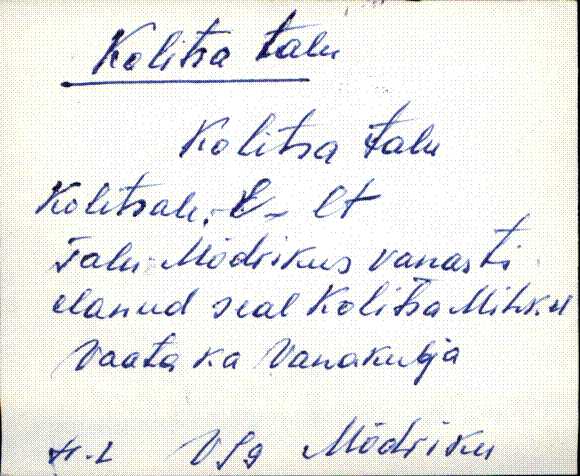 Kolitsa talu
Kolitsa talu
Kolitsale, -l, -lt
Talu Mõdrikus vanasti
elanud seal Kolitsa Mihkel
Vaata ka Vanakubja
VJg Mõdriku